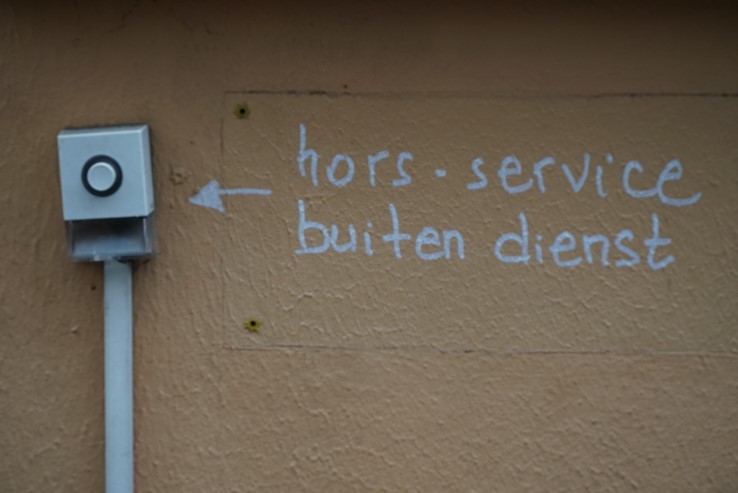 hors-service
buiten dienst